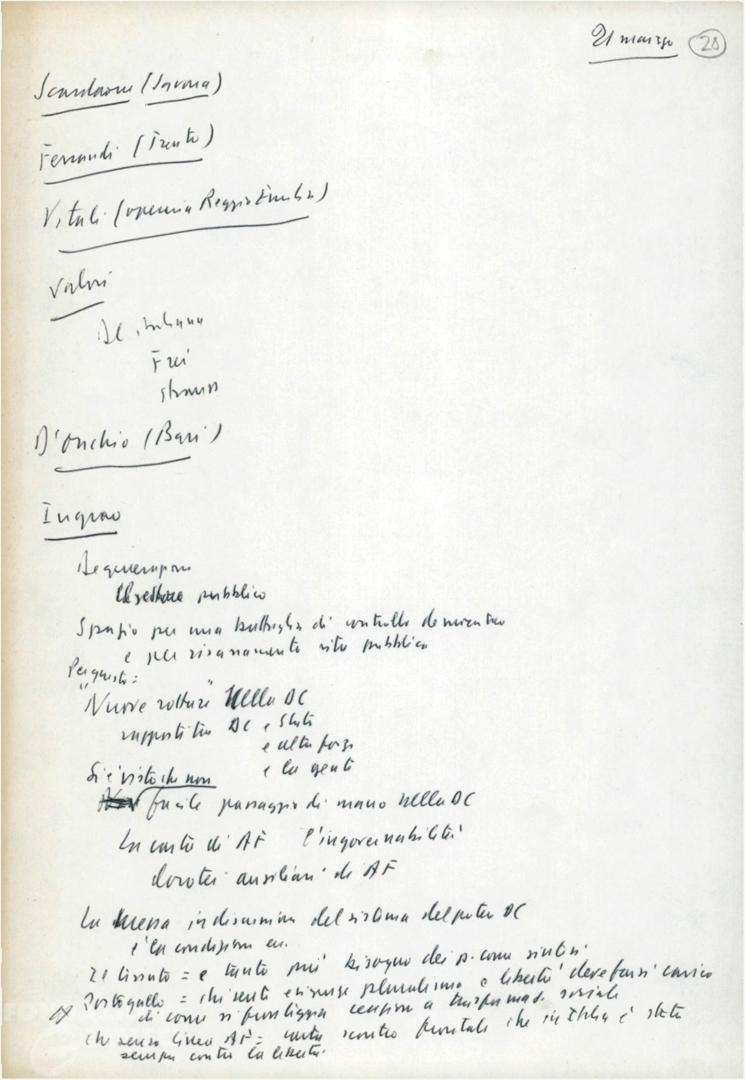 21 marzo 28
Scardaoni (Savona)
Ferrandi (Trento)
Vitali (operaia Reggio Emilia)
Valori
DC italiana
Frei
Strauss
D'Onchio (Bari)
Ingrao
Degenerazione
Il settore pubblico
Spazio per una battaglia di controllo democratico
e per risanamento vita pubblica
Per questo:
"Nuove rotture" nella DC
rapporti tra DC e Stato
e altre forze
e la gente
Si è visto che non
facile passaggio di mano nella DC
La carta di AF l'ingovernabilità
dorotei ausiliari di AF
La messa in discussione del sistema del potere DC
è la condizione
Il tessuto = e tanto più bisogno dei p. come sintesi
Portogallo = chi sente esigenze pluralismo e libertà deve farsi carico
di come si fronteggia reazione a trasformaz. sociale
che senso linea AF = verso scontro frontale che in Italia è stato
sempre contro la libertà